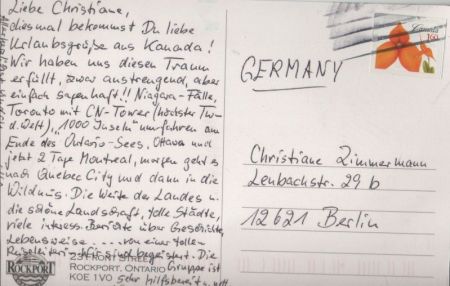 Liebe Christiane,
diesmal bekommst Du liebe
Urlaubsgrüße aus Kanada!
Wir haben uns diesen Traum
erfüllt, zwar anstrengend, aber
einfach sagenhaft!! Niagara-Fälle,
Toronto mit CN-Tower (höchster Tu-
d. Welt), "1000 Inseln" umfahren am
Ende des Ontario-Sees, Ottawa und
jetzt 2 Tage Montreal, morgen geht es
nach Quebec City und dann in die
Wildnis. Die Weite der Landes u.
die schöne Landschaft, tolle Städte,
viele interess. Berichte über Geschichte,
Lebensweise ..... von einer tollen
Reiseleiterin. Wir sind begeistert. Die
Gruppe ist
sehr hilfsbereit u. nett
ROCKPORT
23 FRONT STREET
ROCKPORT, ONTARIO
KOE 1VO
Canada
1.60
GERMANY
Christiane Zimmermann
Lenbachstr. 29 b
12621 Berlin